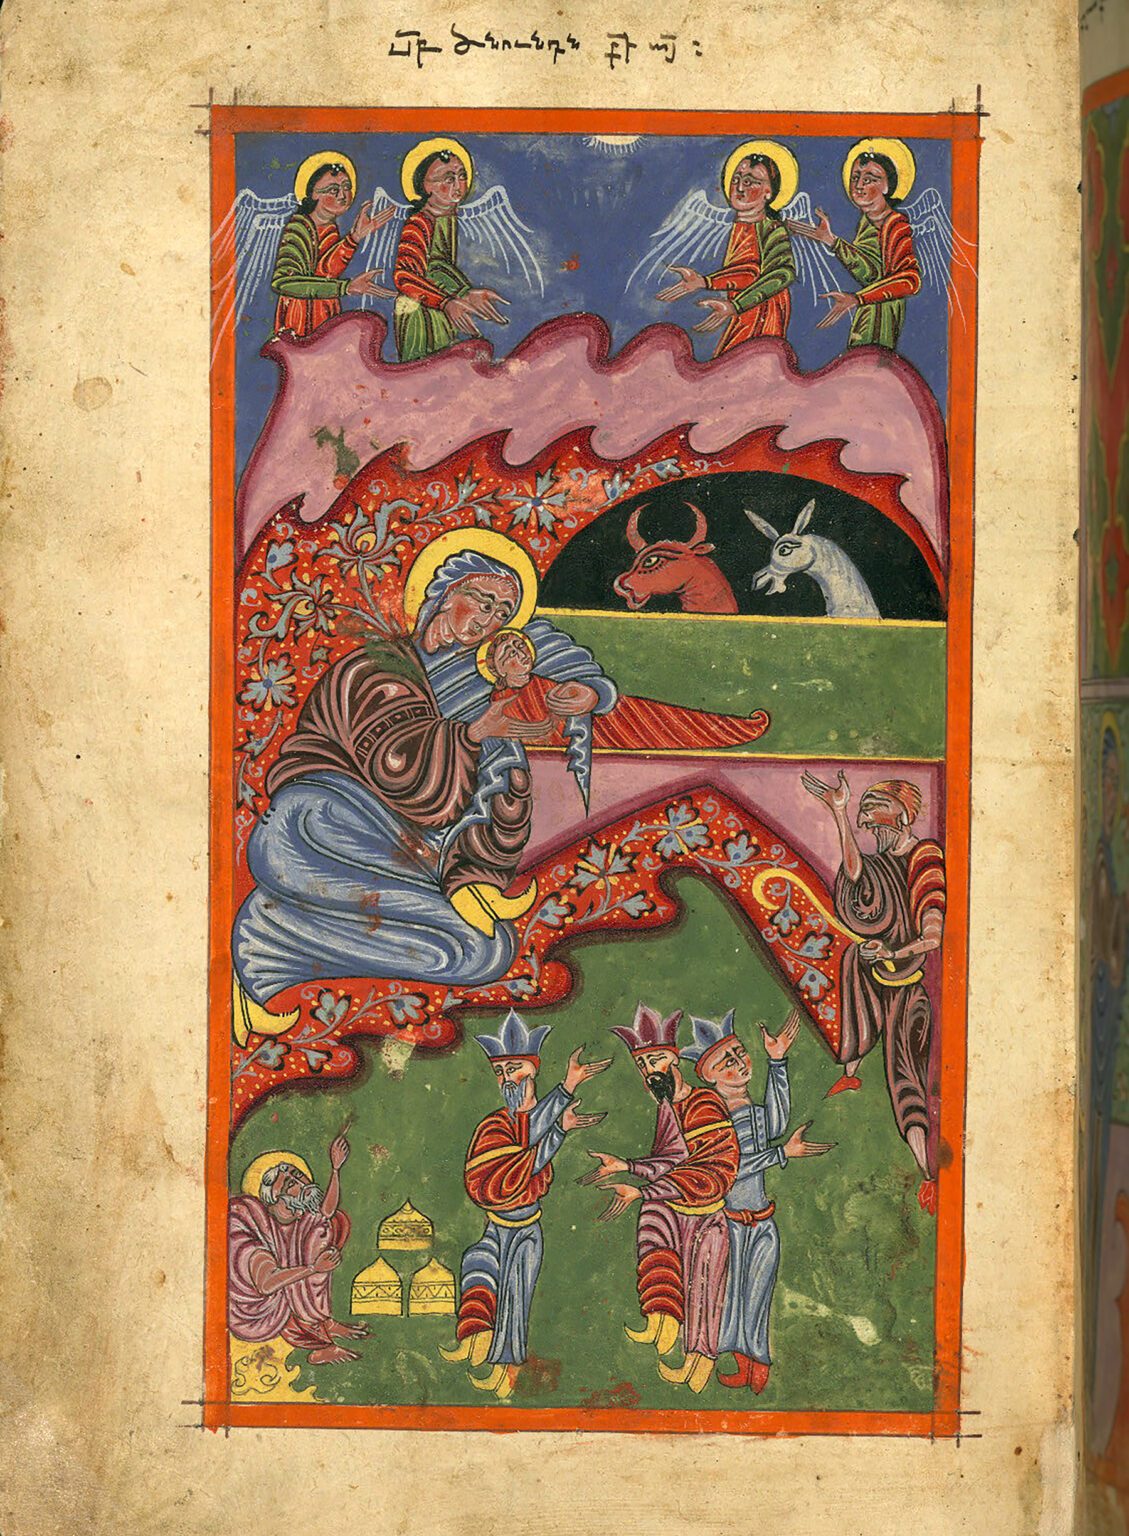 սբ ծնունդն քի այ :